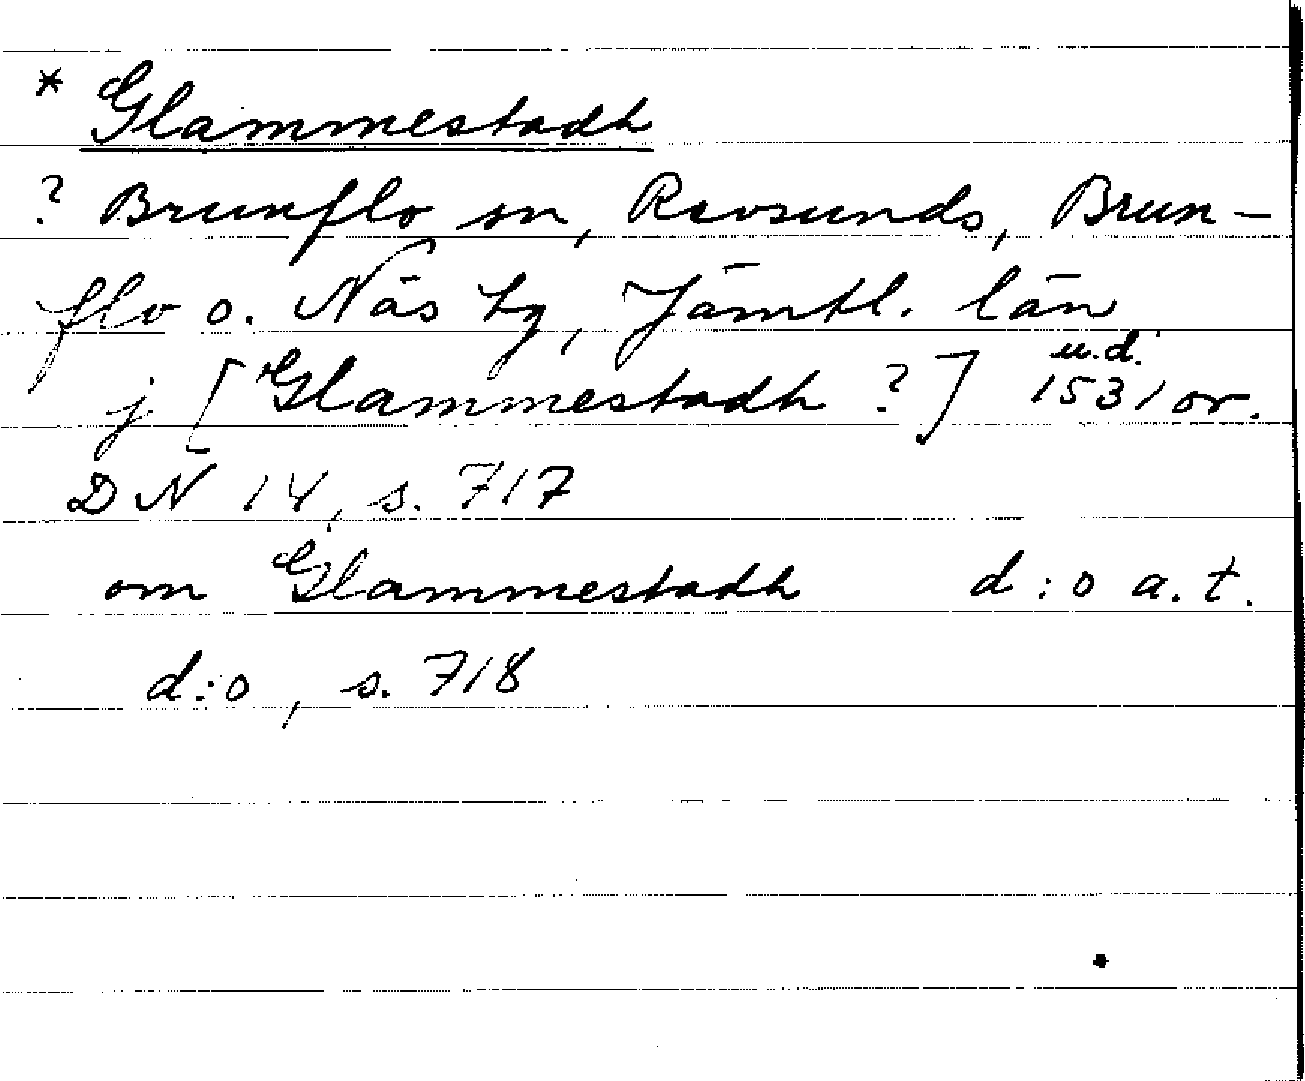 * Glammestadh
? Brunflo sn, Revsunds, Brun-
flo o. Näs tg, Jämtl. län
u.d.
j [Glammestadh ?] 1531 or.
DN 14, s. 717
om Glammestadh d:o a.t.
d:o, s. 718